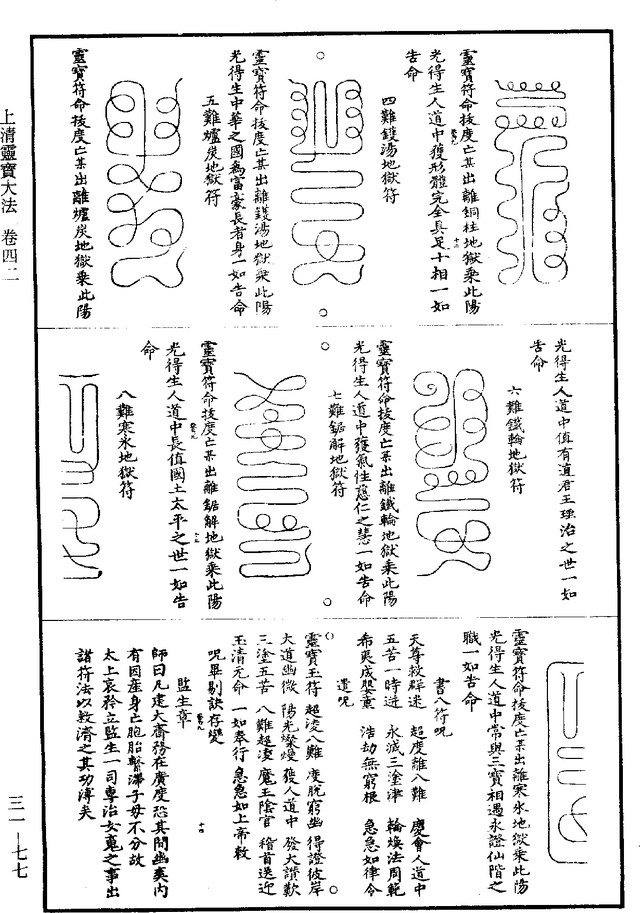 靈寶符命拔度亡某出離銅柱地獄乘此陽
光得生人道中獲形體完全具足十相一如
告命
四難鑊湯地獄符
靈寶符命拔度亡某出離鑊湯地獄乘此陽
光得生中華之國為富豪長者身一如告命
五難爐炭地獄符
靈寶符命拔度亡某出離爐炭地獄乘此陽
光得生人道中值有道君王理治之世一如
告命
六難鐵輪地獄符
靈寶符命拔度亡某出離鐵輪地獄乘此陽
光得生人道中獲氣性慈仁之慧一如告命
七難鋸解地獄符
靈寶符命拔度亡某出離鋸解地獄乘此陽
光得生人道中長值國土太平之世一如告
命
八難寒氷地獄符
靈寶符命拔度亡某出離寒氷地獄乘此陽
光得生人道中常與三寶相遇永證仙階之
職一如告命
書八符呪
天尊救群迷 超度離八難 慶會人道中
五苦一時逝 永滅三塗津 輪煥法周範
希夷成嬰童 浩劫無窮根 急急如律令
遣呪
靈寶玉符 超淩八難 度脫窮幽 得證彼岸
大道幽微 陽光燦熳 獲人道中 發大讚歎
三塗五苦 八難超淩 魔王陰官 稽首送迎
玉清元命 一如奉行 急急如上帝敕
呪畢剔訣存變
監生章
師曰凡建大齋務在廣度恐其間幽爽內
有因產身亡胞胎繫滯子母不分故
太上哀矜立監生一司專治女鬼之事出
諸符法以救濟之其功溥矣
上清靈寶大法 卷四二
三一—七七